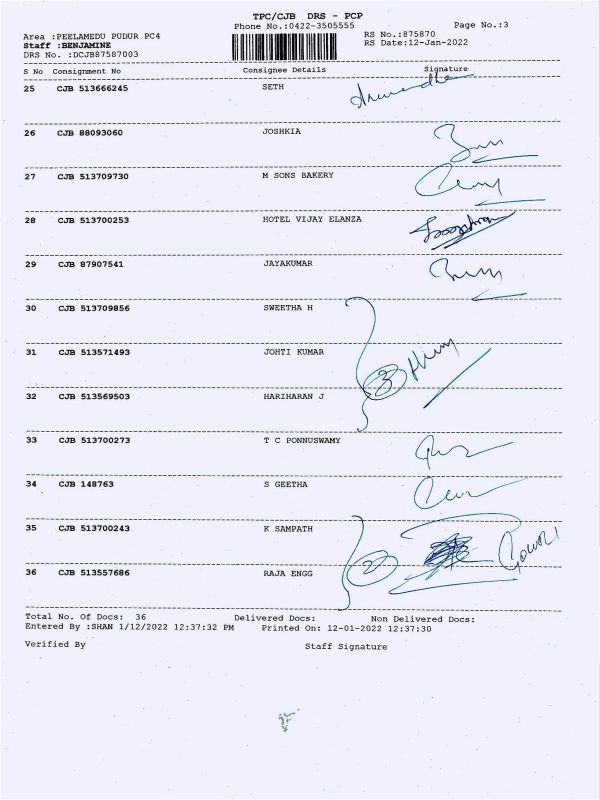 TPC/CJB DRS - PCP
Phone No.:0422-3505555 Page No.:3
Area :PEELAMEDU PUDUR PC4 RS No.:875870
Staff :BENJAMINE RS Date:12-Jan-2022
DRS No. :DCJB87587003
S No Consignment No Consignee Details Signature
25 CJB 513666245 SETH
26 CJB 88093060 JOSHKIA
27 CJB 513709730 M SONS BAKERY
28 CJB 513700253 HOTEL VIJAY ELANZA
29 CJB 87907541 JAYAKUMAR
30 CJB 513709856 SWEETHA H
31 CJB 513571493 JOHTI KUMAR
3
32 CJB 513569503 HARIHARAN J
33 CJB 513700273 T C PONNUSWAMY
34 CJB 148763 S GEETHA
35 CJB 513700243 K SAMPATH
2
36 CJB 513557686 RAJA ENGG
Total No. Of Docs: 36 Delivered Docs: Non Delivered Docs:
Entered By :SHAN 1/12/2022 12:37:32 PM Printed On: 12-01-2022 12:37:30
Verified By Staff Signature